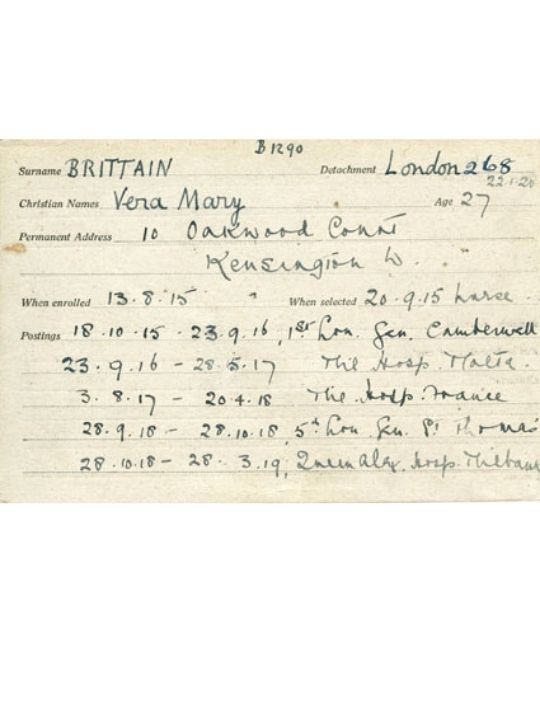 B1290
Surname BRITTAIN Detachment London 268
22.1.20
Christian Names Vera Mary Age 27
Permanent Address 10 Oakwood Court
Kensington W.
When enrolled 13.8.15 When selected 20.9.15 nurse
Postings 18.10.15 - 23.9.16, 1st Lon. Gen. Camberwell
23.9.16 - 28.5.17 Mil Hosp. Malta.
3.8.17 - 20.4.18 Mil. Hosp. France
28.9.18 - 28.10.18, 5th Lon Gen. St Thomas
28.10.18 - 28.3.19, Queen Alex. Hosp. Millbank